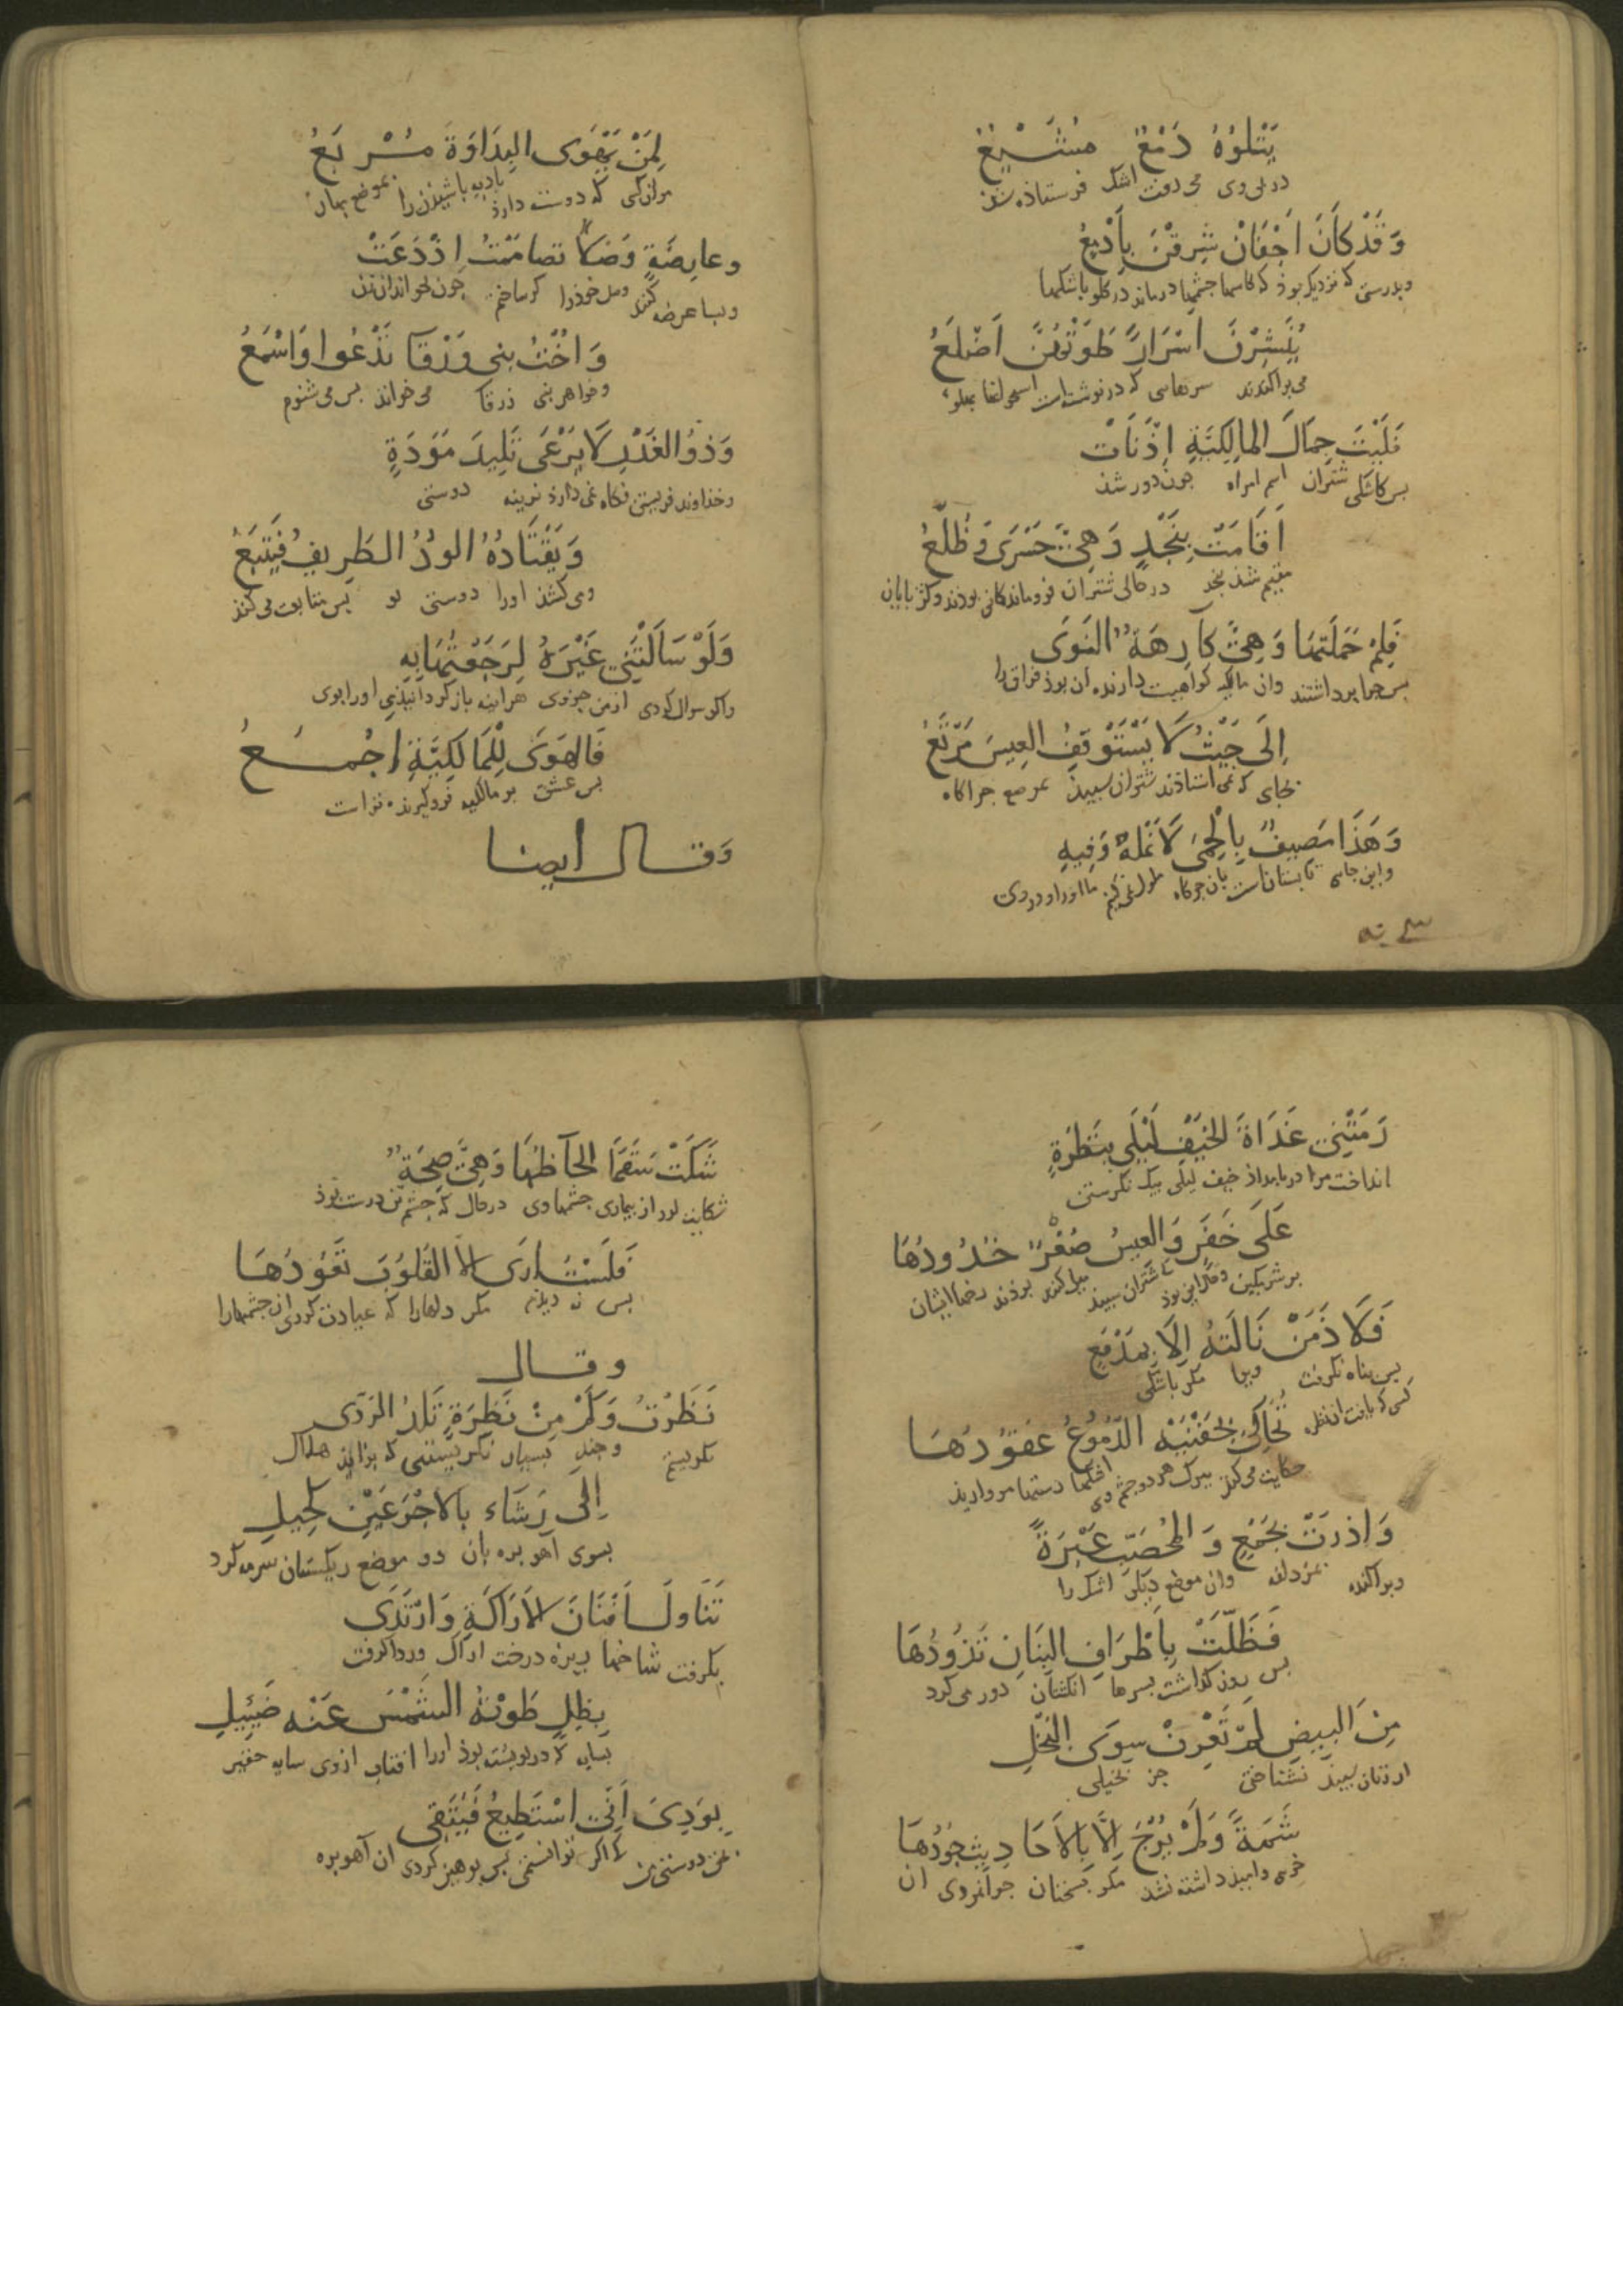 يَتْلُوهُ دَمْعٌ مُشَيِّعُ
در پی وی می رفت اشک فرستاده شده
وَقَدْ كَانَ اَجْفَانٌ شَرِقْنَ بِاَدْمُعٍ
وبدرستی که نزدیک بوذ که کاسها جشمها درماند در کلو باشکها
يُنَشِّرْنَ اَسْرَارًا طَوَتْهُنَّ اَضْلُعُ
می پراکندند سرهایی که در نوشته است
فَلَيْتَ جِمَالَ المَالِكِيَّةِ اِذْ نَأَتْ
بس کاشکی شتران اسم امراه جون دور شذ
اَقَامَتْ بِنَجْدٍ وَهِيَ حَسْرَى وَظُلَّعُ
مقیم شذ بنجد در حالی شتران فروماندکانی بوذند وکژ پایان
فَلِمْ حَمَلَتْهَا وَهِيَ كَارِهَةُ النَوَى
بس جرا برداشتند وان مالکیه کراهیت دارنده ان بوذ فراق را
اِلَى حَيْثُ لَا يَسْتَوْقِفُ العِيسَ مَرْتَعُ
بجای که نمی استاذند شتران سبیذ مرضع جراکاه
وَهَذَا مَصِيفٌ بِالْحِمَى لَا نَمَلُّهُ وَفِيهِ
واین جای تابستان است بان جراکاه ملول نمی کنیم ما اورا ودر وی
لِمَنْ يَهْوَى البِدَاوَةَ مَرْبَعُ
مرآن کس که دوست دارذ بادیه باشیذن را موضع بهار
وعارِضَةٍ وَصْلًا تصامَمْتُ اِذْ دَعَتْ
وبسا عرضه کننده وصل خوذرا کر ساختم جون بخواند ان زن
وَاُخْتُ بَنِي وَرْقَا تَدْعُوا وَاَسْمَعُ
وخواهر بنی ورقا می خواند بس می شنوم
وَذُو الغَدْرِ لَا يَرْعَى تَلِيدَ مَوَدَّةٍ
وخذاوند فریبش نکاه نمی دارذ دیرینه دوستی
وَيَقْتَادُهُ الوُدُّ الطَرِيفُ فَيَتْبَعُ
ومی کشذ اورا دوستی نو بس متابعت می کنذ
وَلَوْ سَاَلَتْنِي غَيْرَهُ لَرَجَعْتُهَا بِهِ
واکر سوال کردی از من جز وی هراینه بازکردانیذمی اورا بوی
فَالهَوَى لِلْمَالِكِيَّةِ اَجْمَعُ
بس عشق مر مالکیه فروکیرنده تر است
وَقال ايضا
رَمَتْنِي غَدَاةَ الخَيْفِ لَيْلَى بِنَظْرَةٍ
انداخت مرا در بامداذ خیف لیلی بیک نکرستن
عَلَى خَفَرٍ وَالعِيسُ صُعْرٌ خُدُودُهَا
بر شرمکین وحال این بوذ تا شتران سبیذ میل کننده بوذند رخهاایشان
فَلَا ذَمَنْ نَالَتْهُ اِلَّا بِمَدْمَعٍ
بس بناه نکرفت ویرا مکر باشکی
تُحَاكِي بِجَفْنَيْهِ الدُّمُوعُ عُقُودُهَا
حکایت می کنذ ببرک هر دو جشم وی اشکها دستها مروارید
وَاِذْرَتْ بِجَمْعٍ وَالمُحَصَّبِ عَبْرَةً
وبراکنده بمزدلفه وان موضع دیکر اشک را
فَظَلَّتْ بِاَطْرَافِ البَنَانِ تَذُودُهَا
بس روز کذاشت بسرها انکشتان دور می کرد
مِنَ البِيضِ لَمْ تَعْرِفْ سِوَى البُخْلِ
از زنان سبیذ نشناختی جز بخیلی
شِيمَةً وَلَمْ يُرْجَ اِلَّا بِالاَحَادِيثِ جُودُهَا
خوی وامیذ داشته نشذ مکر بسخنان جوانمردی ان
شَكَتْ سَقَمًا اَلحَاظُهَا وَهِيَ صِحَّةٌ
شکایت کرد از بیماری جشمها وی در حال که جشم زن درست بوذ
فَلَسْتُ اَرَى اِلَّا القُلُوبَ تَعُودُهَا
بس نه دیذم مکر دلهارا که عیادت کردی ان جشمهارا
وقال
نَظَرْتُ وَكَمْ مِنْ نَظْرَةٍ تَلِدُ الرَدَى
نکریستم وجند بسیار نکریستنی که بزایذ هلاک
اِلَى رَشَاءٍ بالاَجْرَعَيْنِ كَحِيلِ
بسوی آهو بره بان دو موضع ریکستان سرمه کرد
تَنَاوَلَ اَفْنَانَ الاَرَاكَةِ وَارْتَدَى
بکرفت شاخها بیزه درخت اراک ورداکرفت
بِظِلٍّ طَوَتْهُ الشَمْسُ عَنْهُ ضَئِيلِ
بسایه که در نوشته بوذ اورا افتاب ازوی سایه حقیر
بِوُدِّيَ اَنِّي اَسْتَطِيعُ فَيَتَّقِي
بمن دوستی من که اکر توانستمی بس بوهیز کردی ان آهو بره